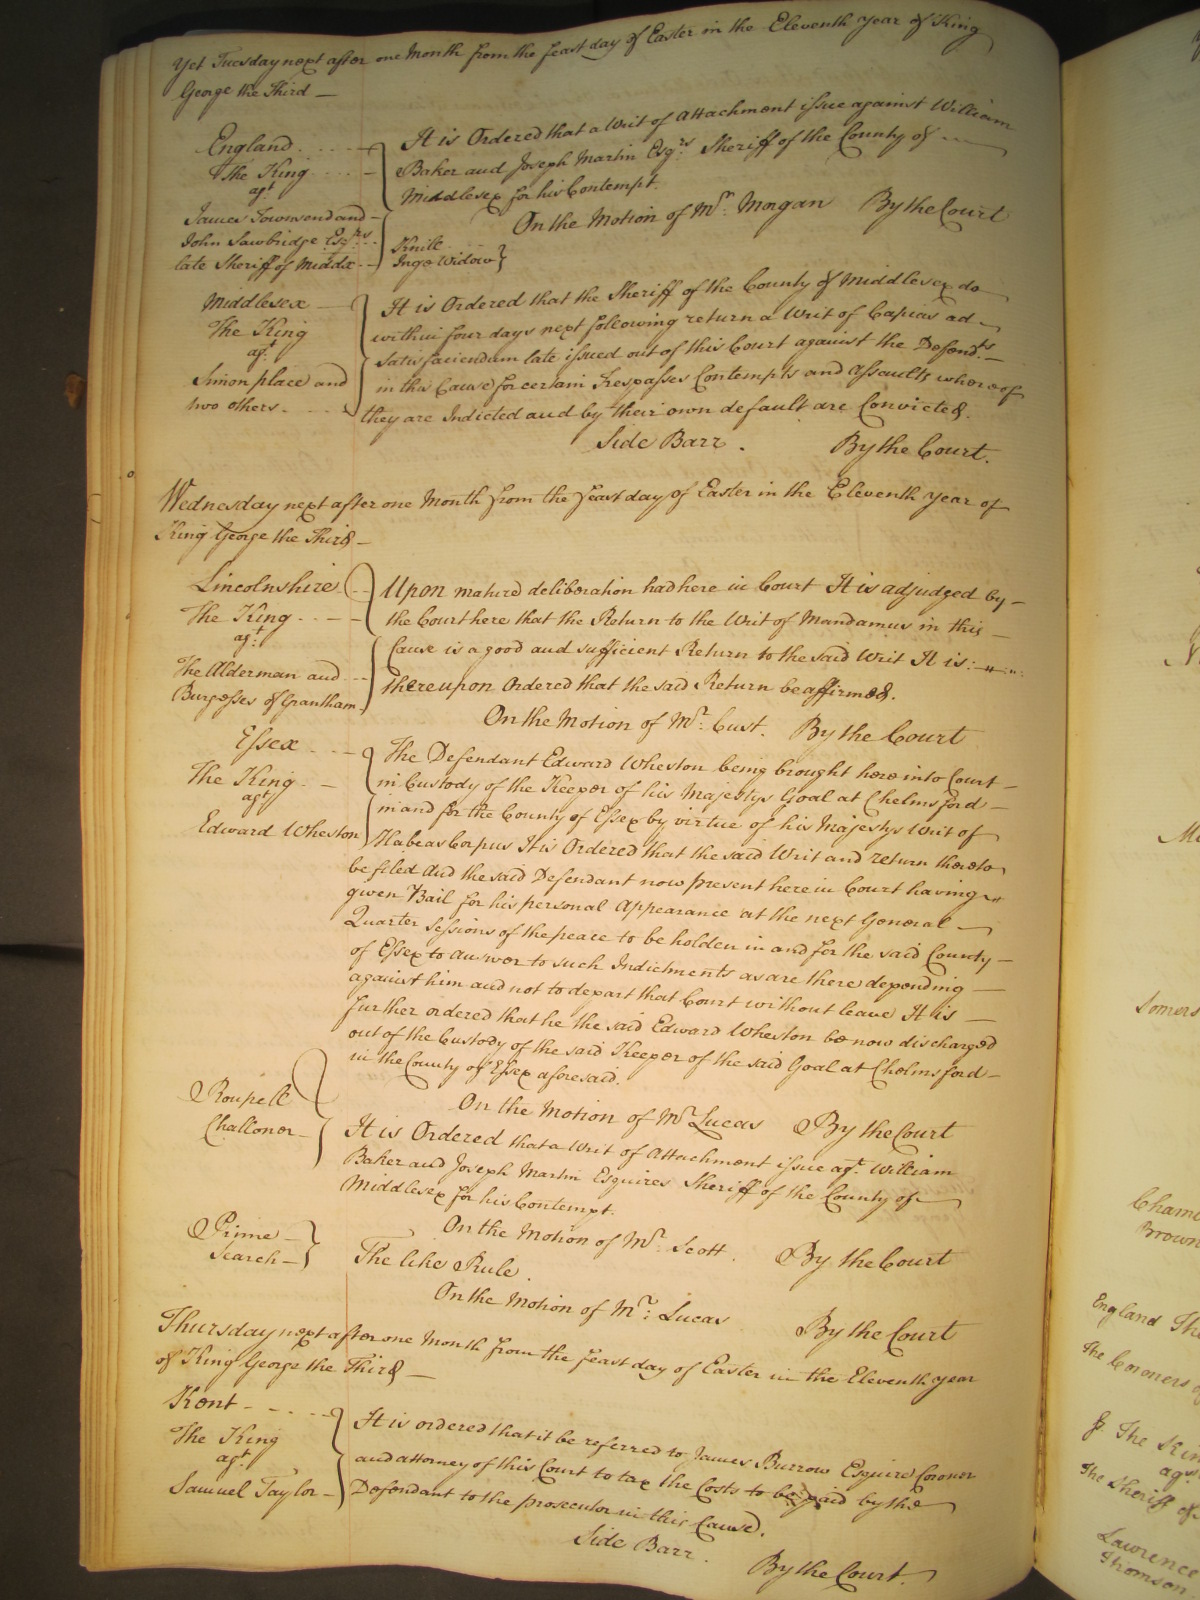 Yet Tuesday next after one Month from the feast day of Easter in the Eleventh Year of King
George the Third —
England
The King
agt
James Townsend and
John Sawbridge Esqrs
late Sheriff of Middx
It is Ordered that a Writ of Attachment issue against William
Baker and Joseph Martin Esqrs. Sheriff of the County of
Middlesex for his Contempt.
On the Motion of Mr. Morgan By the Court
Knill
Inge Widow
Middlesex —
The King
agt
Simon place and
two others.
It is Ordered that the Sheriff of the County of Middlesex do
within four days next following return a Writ of Capias ad
Satisfaciendum late issued out of this Court against the Defendts —
in this Cause for certain Trespasses Contempts and Assaults whereof
they are Indicted and by their own default are Convicted.
Side Barr. By the Court.
Wednesday next after one Month from the feast day of Easter in the Eleventh Year of
King George the Third —
Lincolnshire
The King
agt
The Alderman and
Burgesses of Grantham
Upon mature deliberation had here in Court It is adjudged by —
the Court here that the Return to the Writ of Mandamus in this —
Cause is a good and sufficient Return to the said Writ It is
thereupon Ordered that the said Return be affirmed.
On the Motion of Mr. Cust. By the Court
Essex
The King
agt
Edward Wheston
The Defendant Edward Wheston being brought here into Court —
in Custody of the Keeper of his Majestys Goal at Chelmsford —
in and for the County of Essex by virtue of his Majestys Writ of
Habeas Corpus It is Ordered that the said Writ and return thereto
be filed And the said Defendant now present here in Court having
given Bail for his personal Appearance at the next General —
Quarter Sessions of the peace to be holden in and for the said County —
of Essex to answer to such Indictments as are there depending —
against him and not to depart that Court without leave It is —
further ordered that he the said Edward Wheston be now discharged
out of the Custody of the said Keeper of the said Goal at Chelmsford —
in the County of Essex aforesaid.
On the Motion of Mr Lucas By the Court
Roupell
Challoner —
It is Ordered that a Writ of Attachment issue agt. William
Baker and Joseph Martin Esquires Sheriff of the County of
Middlesex for his Contempt.
On the Motion of Mr. Scott. By the Court
Prime —
Search —
The like Rule.
On the Motion of Mr. Lucas By the Court
Thursday next after one Month from the feast day of Easter in the Eleventh Year
of King George the Third —
Kent
The King
agt
Samuel Taylor —
It is ordered that it be referred to James Burrow Esquire Coroner
and attorney of this Court to tax the Costs to be paid by the
Defendant to the prosecutor in this Cause.
Side Barr. By the Court.
Somers
Brown
England The
The Coroners of
The King
agt
The Sheriff of
Lawrence
Thomson